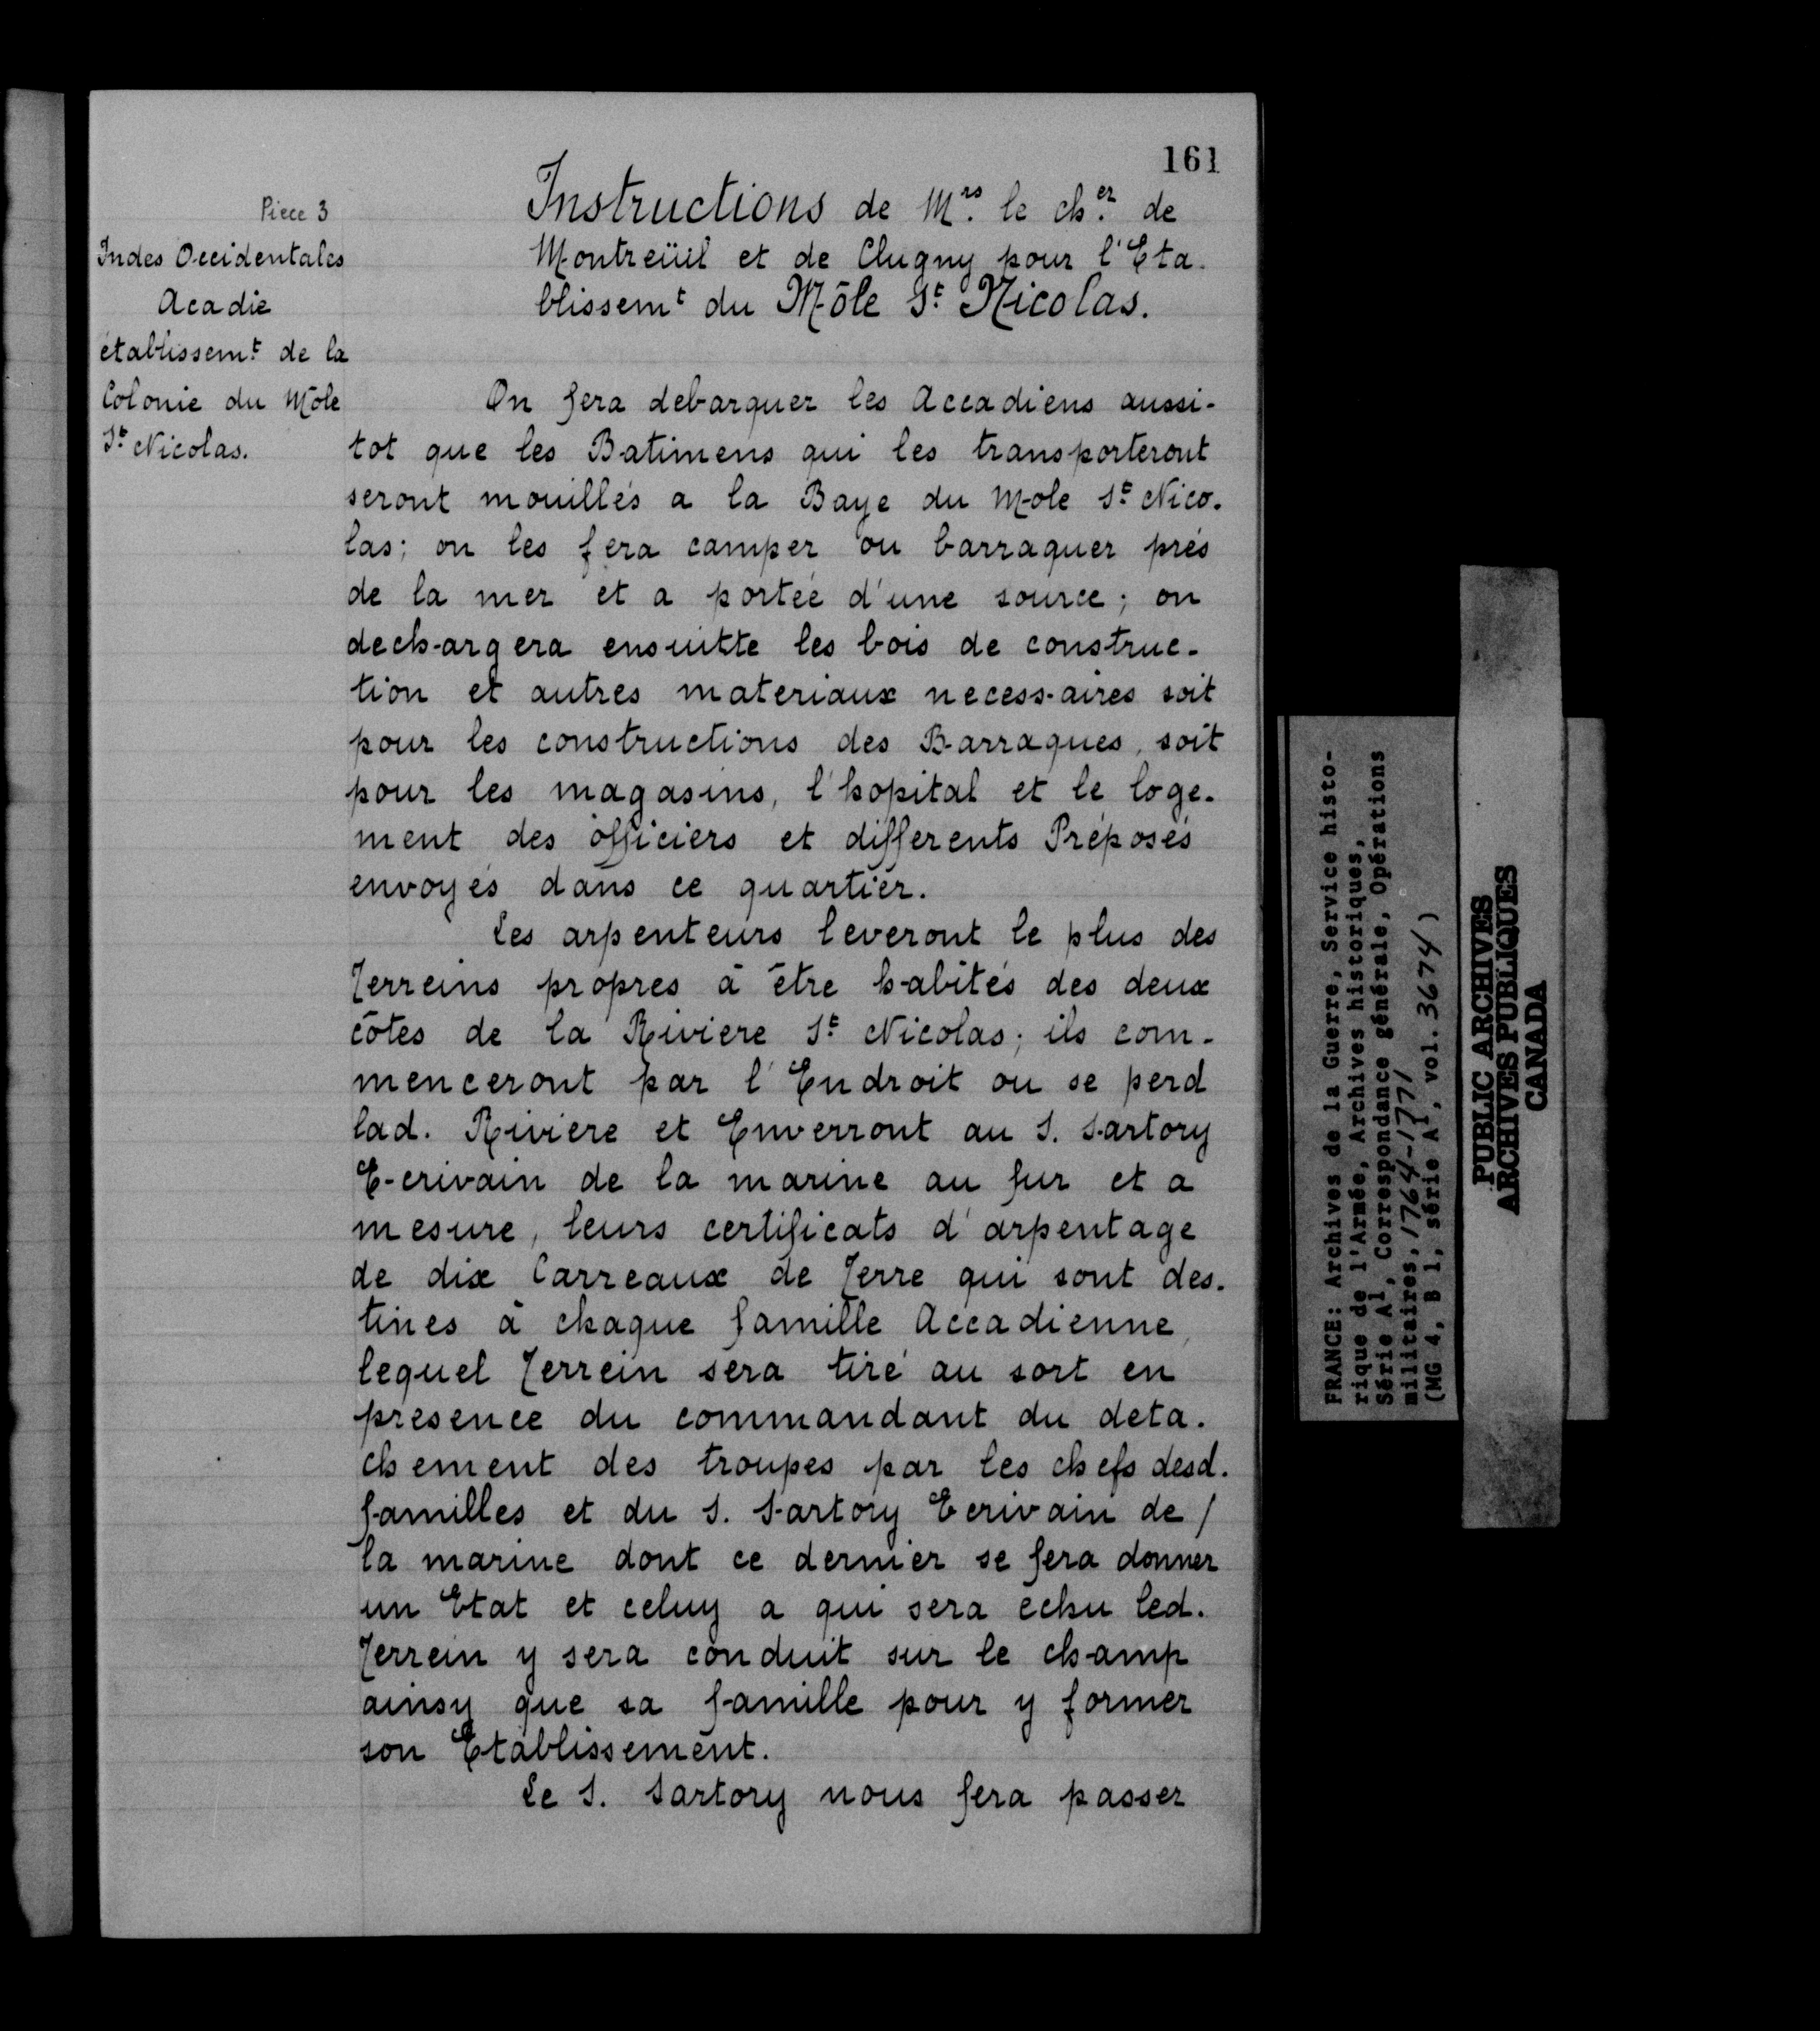 161
Piece 3
Indes Occidentales
Acadie
établissemt de la
Colonie du Môle
St Nicolas.
Instructions de Mrs. le cher. de
Montreüil et de Clugny pour l'Eta-
blissemt du Môle St Nicolas.
On fera debarquer les Accadiens aussi-
tot que les Batimens qui les transporteront
seront mouillés a la Baye du Mole St Nico-
las; on les fera camper ou barraquer près
de la mer et a portée d'une source; on
dechargera ensuitte les bois de construc-
tion et autres materiaux necessaires soit
pour les constructions des Barraques, soit
pour les magasins, l'hopital et le loge-
ment des officiers et differents Préposés
envoyés dans ce quartier.
Les arpenteurs leveront le plus des
Terreins propres à être habités des deux
côtes de la Riviere St Nicolas; ils com-
menceront par l'Endroit ou se perd
lad. Riviere et Enverront au S. Sartory
Ecrivain de la marine au fur et a
mesure, leurs certificats d'arpentage
de dix Carreaux de Terre qui sont des-
tines à chaque famille Accadienne,
lequel Terrein sera tiré au sort en
presence du commandant du deta-
chement des troupes par les chefs desd.
familles et du S. Sartory Ecrivain de /
la marine dont ce dernier se fera donner
un Etat et celuy a qui sera échu led.
Terrein y sera conduit sur le champ
ainsy que sa famille pour y former
son Etablissement.
Le S. Sartory nous fera passer
FRANCE: Archives de la Guerre, Service histo-
rique de l'Armée, Archives historiques,
Série A1, Correspondance générale, Opérations
militaires, 1764-1771
(MG 4, B 1, série A1, vol. 3674)
PUBLIC ARCHIVES
ARCHIVES PUBLIQUES
CANADA